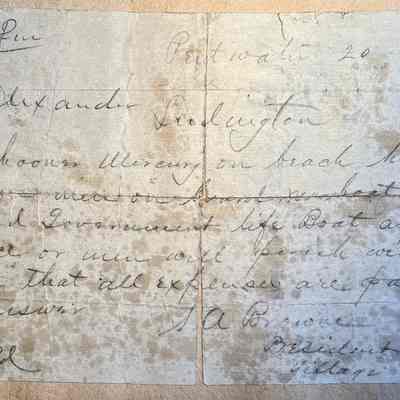 Pentwater 20
Alexander Ludington
Schooner Mercury on beach
men on board no boat
Government life Boat
or men will perish
that all expenses are pa
answer S A Browne
President
Village